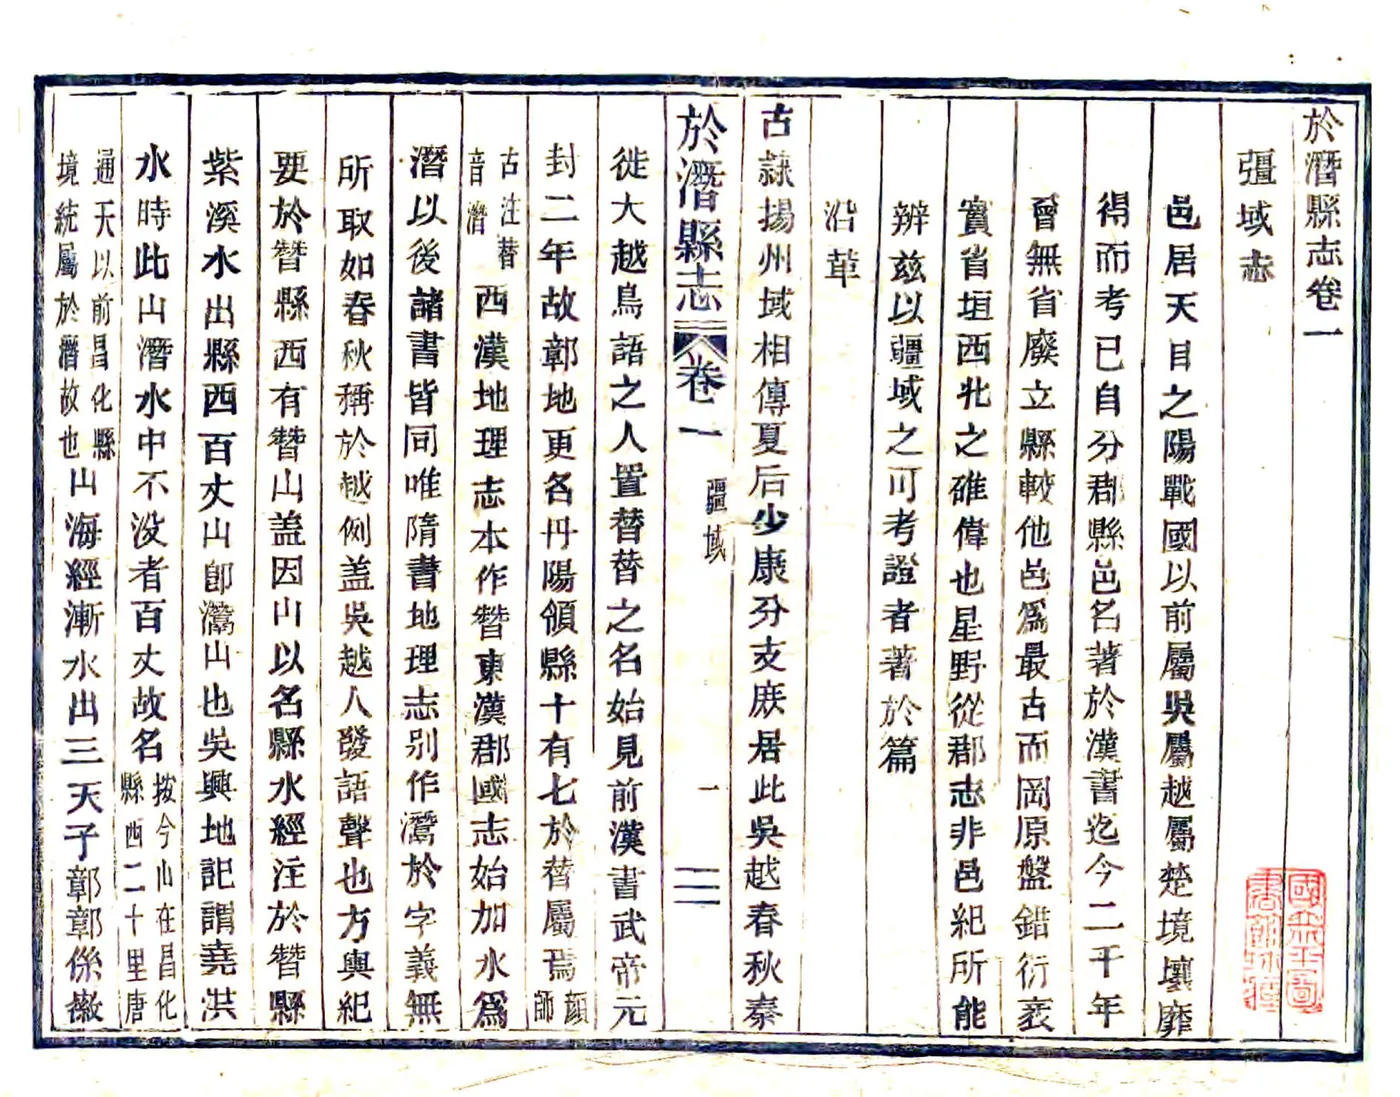 於潛縣志卷一
疆域志
邑居天目之陽戰國以前屬吳屬越屬楚境壤靡
得而考已自分郡縣邑名著於漢書迄今二千年
曾無省廢立縣較他邑爲最古而岡原盤錯衍袤
實省垣西北之雄偉也星野從郡志非邑紀所能
辨茲以疆域之可考證者著於篇
沿革
古隸揚州域相傳夏后少康分支庶居此吳越春秋秦
於潛縣志 卷一 疆域 一
徙大越鳥語之人置朁朁之名始見前漢書武帝元
封二年故鄣地更名丹陽領縣十有七於朁屬焉顏師
古注朁音潛西漢地理志本作朁東漢郡國志始加水爲
潛以後諸書皆同唯隋書地理志別作灊於字義無
所取如春秋稱於越例蓋吳越人發語聲也方輿紀
要於朁縣西有朁山蓋因山以名縣水經注於朁縣
紫溪水出縣西百丈山卽灊山也吳興地記謂堯洪
水時此山潛水中不沒者百丈故名按今山在昌化縣西二十里唐
通天以前昌化縣境統屬於潛故也山海經漸水出三天子鄣鄣係徽